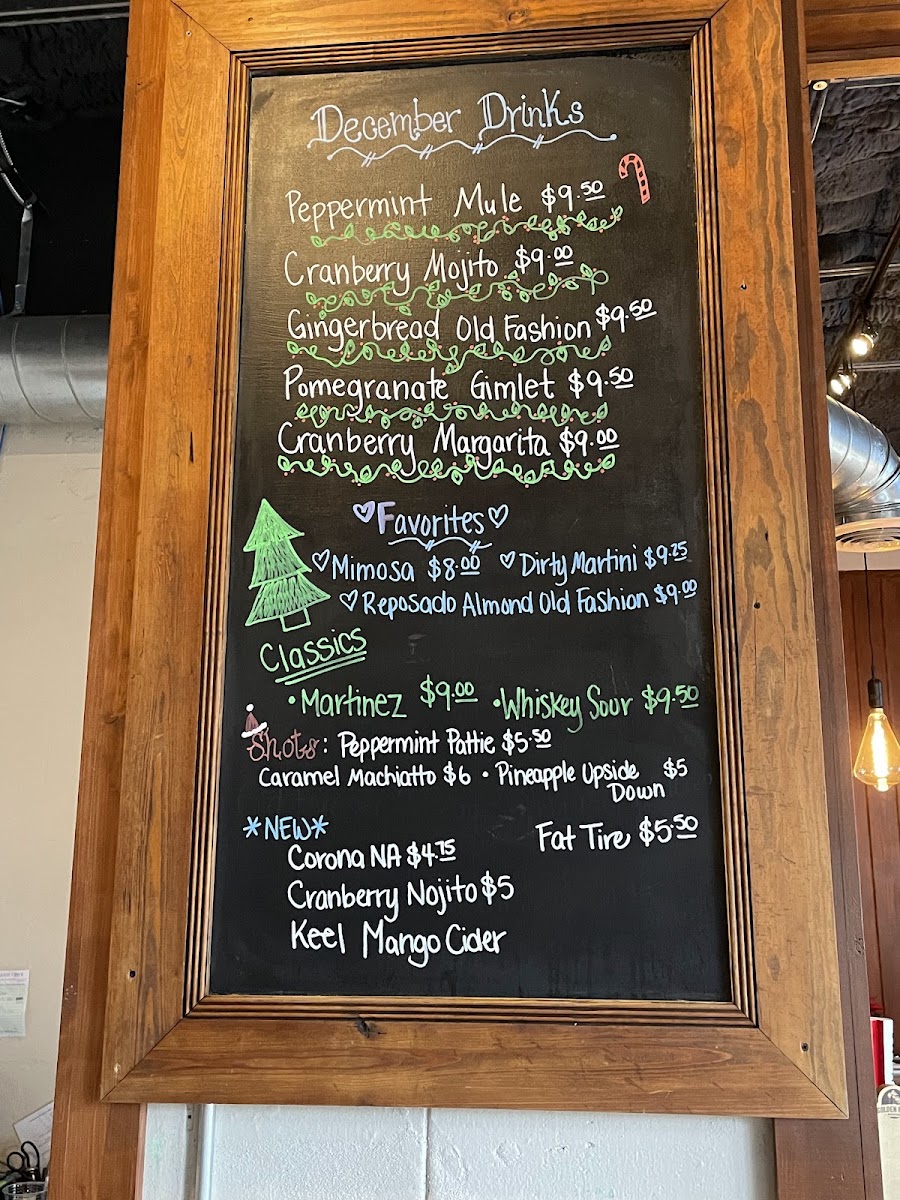 December Drinks
Peppermint Mule $9.50
Cranberry Mojito $9.00
Gingerbread Old Fashion $9.50
Pomegranate Gimlet $9.50
Cranberry Margarita $9.00
Favorites
Mimosa $8.00 Dirty Martini $9.25
Reposado Almond Old Fashion $9.00
Classics
• Martinez $9.00 • Whiskey Sour $9.50
Shots: Peppermint Pattie $5.50
Caramel Machiatto $6 • Pineapple Upside $5
Down
*NEW* Fat Tire $5.50
Corona NA $4.75
Cranberry Nojito $5
Keel Mango Cider